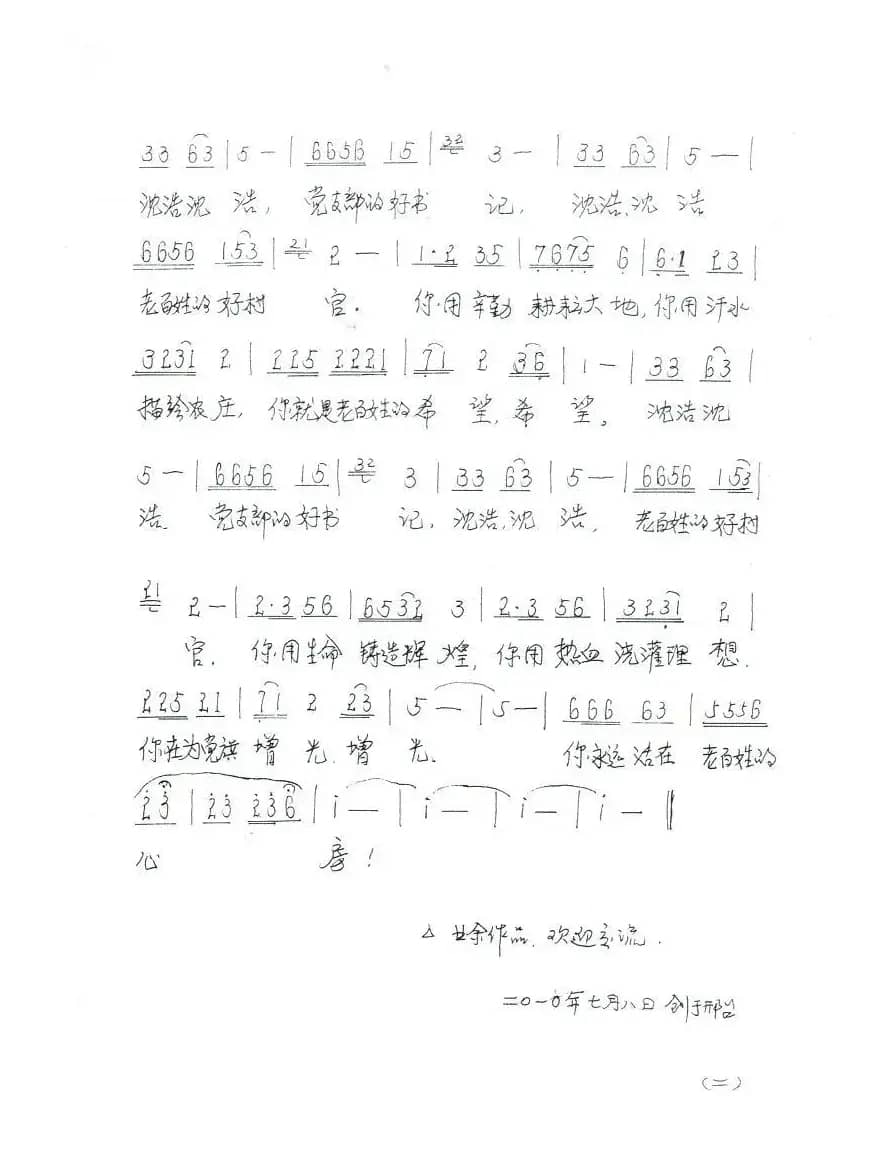 33 63 | 5 — | 6656 15 | 32 3 — | 33 63 | 5 — |
沈浩沈 浩, 党支部的好书 记, 沈浩,沈 浩
6656 153 | 21 2 — | 1·2 35 | 7675 6 | 6·1 23 |
老百姓的好村 官. 你用辛勤 耕耘大地,你用汗水
3231 2 | 225 2221 | 71 2 36 | 1 — | 33 63 |
描绘农庄, 你就是老百姓的希 望,希 望。 沈浩沈
5 — | 6656 15 | 32 3 | 33 63 | 5 — | 6656 153 |
浩. 党支部的好书 记, 沈浩,沈 浩, 老百姓的好村
21 2 — | 2·3 56 | 6532 3 | 2·3 56 | 3231 2 |
官. 你用生命 铸造辉 煌, 你用 热血 浇灌理 想.
225 21 | 71 2 23 | 5 — | 5 — | 666 63 | 5556
你在为党旗 增 光.增 光. 你永远活在 老百姓的
23 | 23 236 | i — | i — | i — | i — ‖
心 房!
△ 业余作品.欢迎交流.
二〇一〇年七月八日 创于邢台
(二)